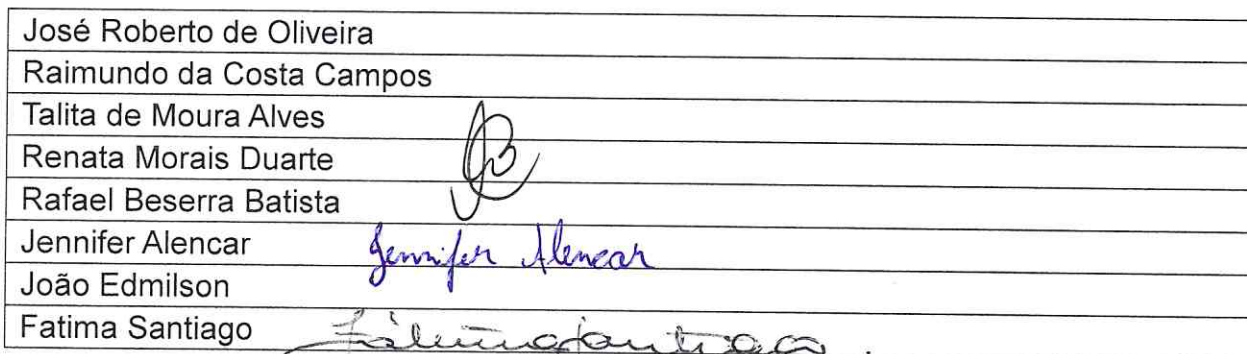 José Roberto de Oliveira
Raimundo da Costa Campos
Talita de Moura Alves
Renata Morais Duarte
Rafael Beserra Batista
Jennifer Alencar Jennifer Alencar
João Edmilson
Fatima Santiago Fátima Santiago